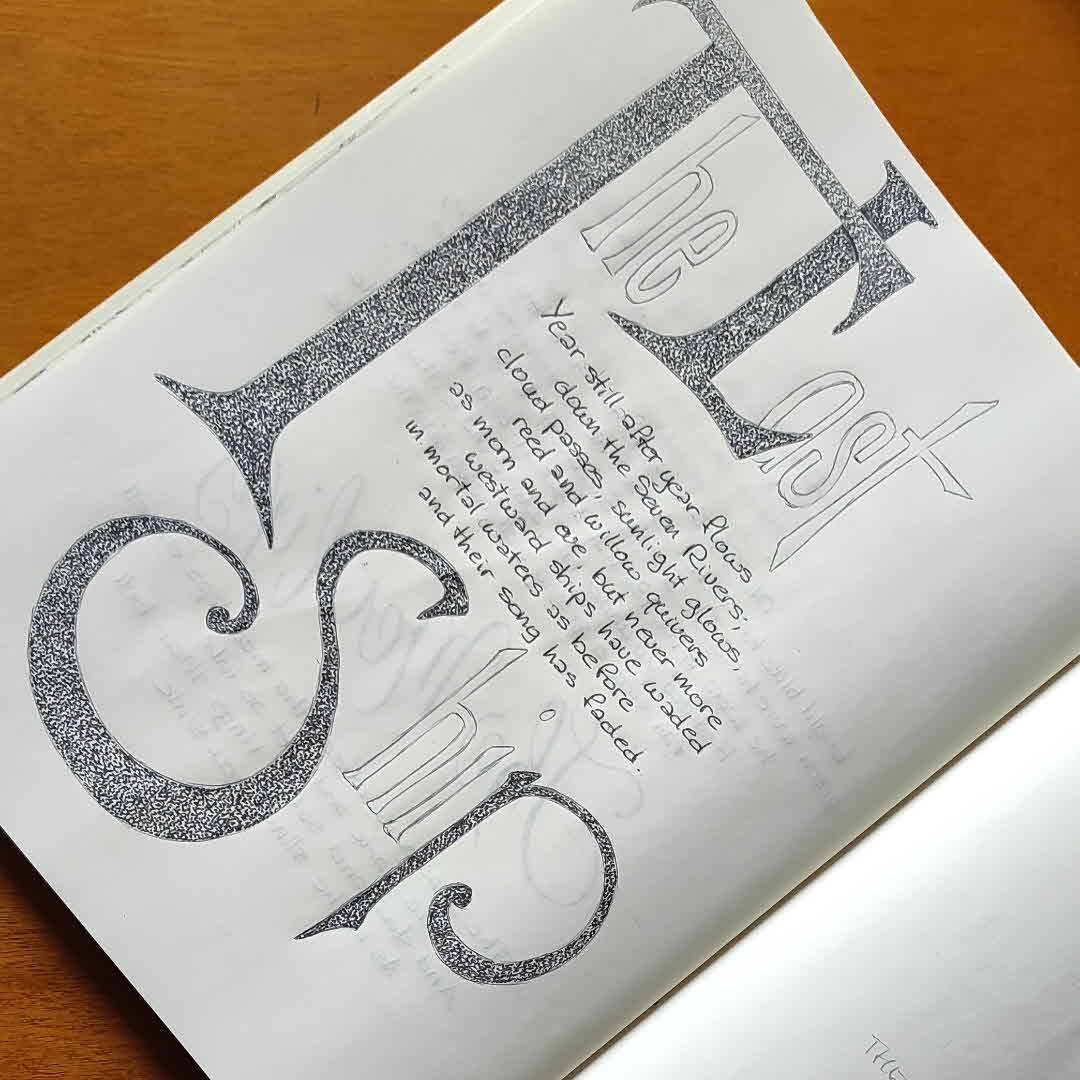 The
Last
Ship
Year still after year flows
down the Seven Rivers;
cloud passes, sunlight glows,
reed and willow quivers
as morn and eve, but never more
westward ships have waded
in mortal waters as before
and their song has faded.
THE